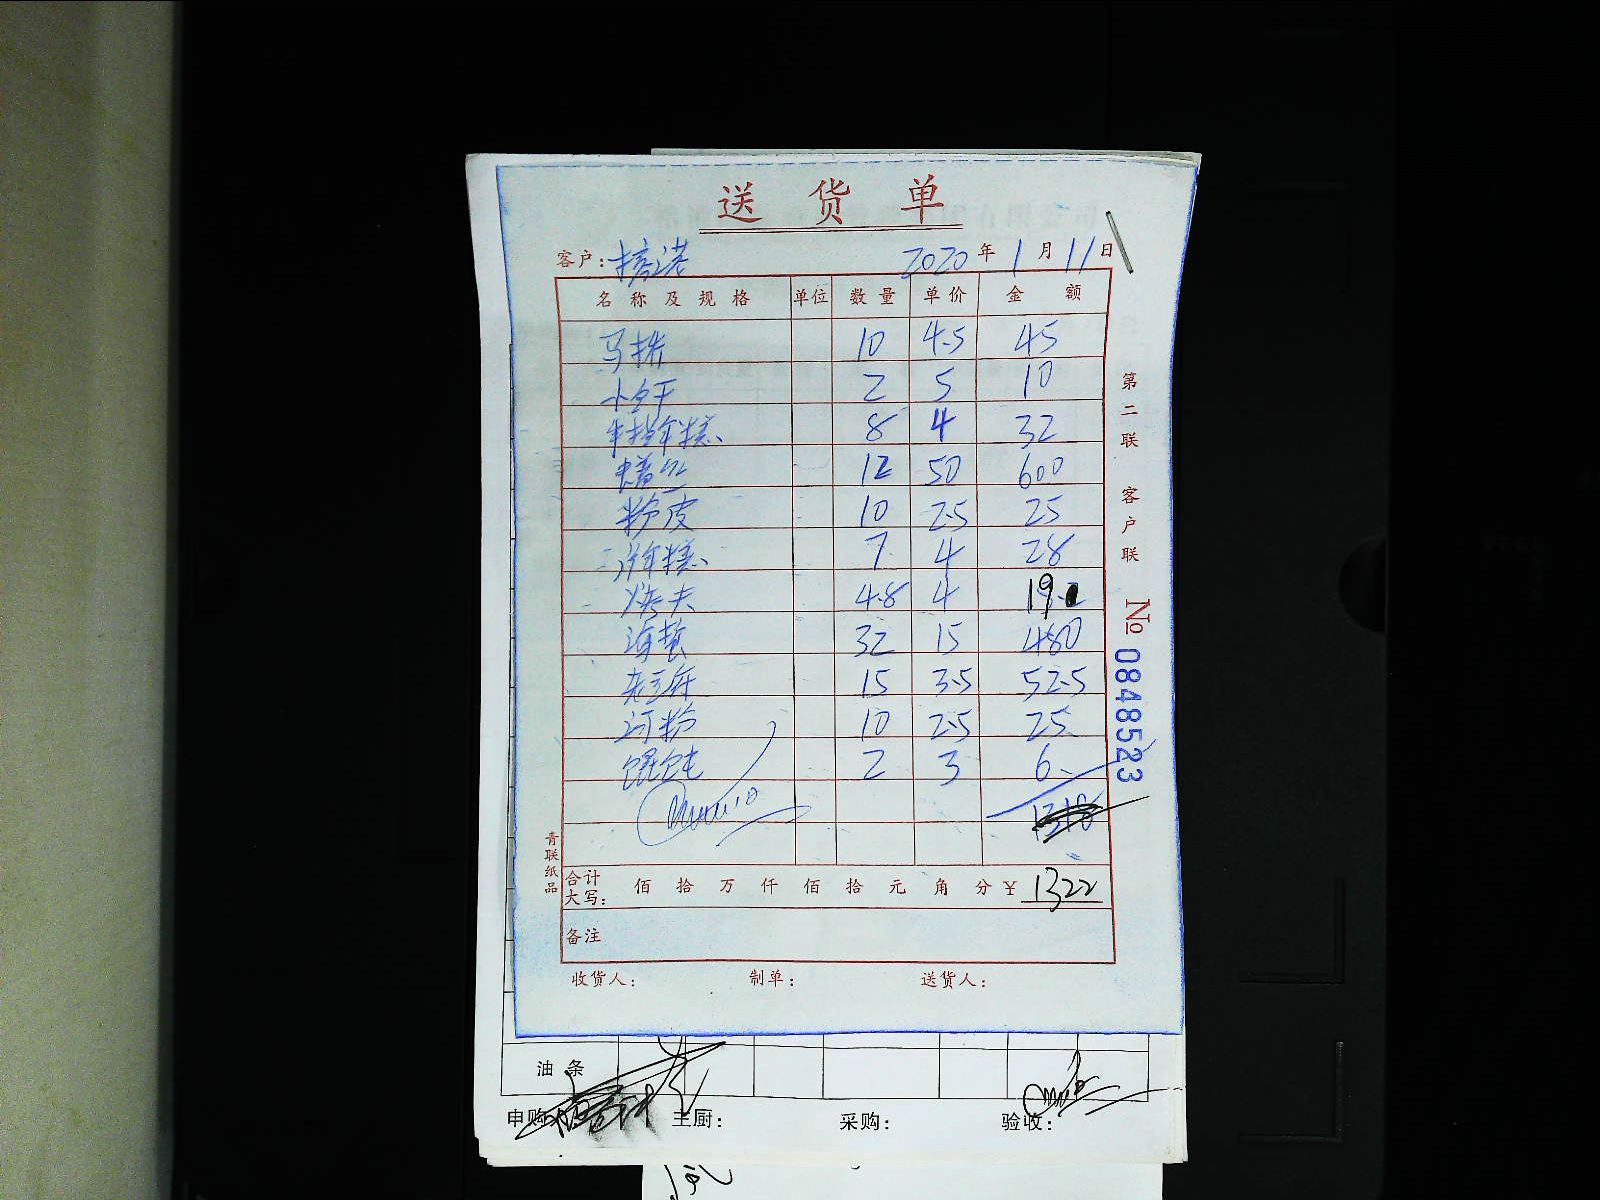 送货单
客户: 2020年1月11日
名称及规格 单位 数量 单价 金额
10 4.5 45
小豆干 2 5 10
年糕 8 4 32
12 50 600
粉皮 10 2.5 25
年糕 7 4 28
4.8 4 19
海蜇 32 15 480
15 3.5 52.5
河粉 10 2.5 25
馄饨 2 3 6
合计大写: 佰拾万仟佰拾元角分¥ 1322
备注
收货人: 制单: 送货人:
第二联 客户联
No 0848523
青联纸品
油条
申购 主厨: 采购: 验收: